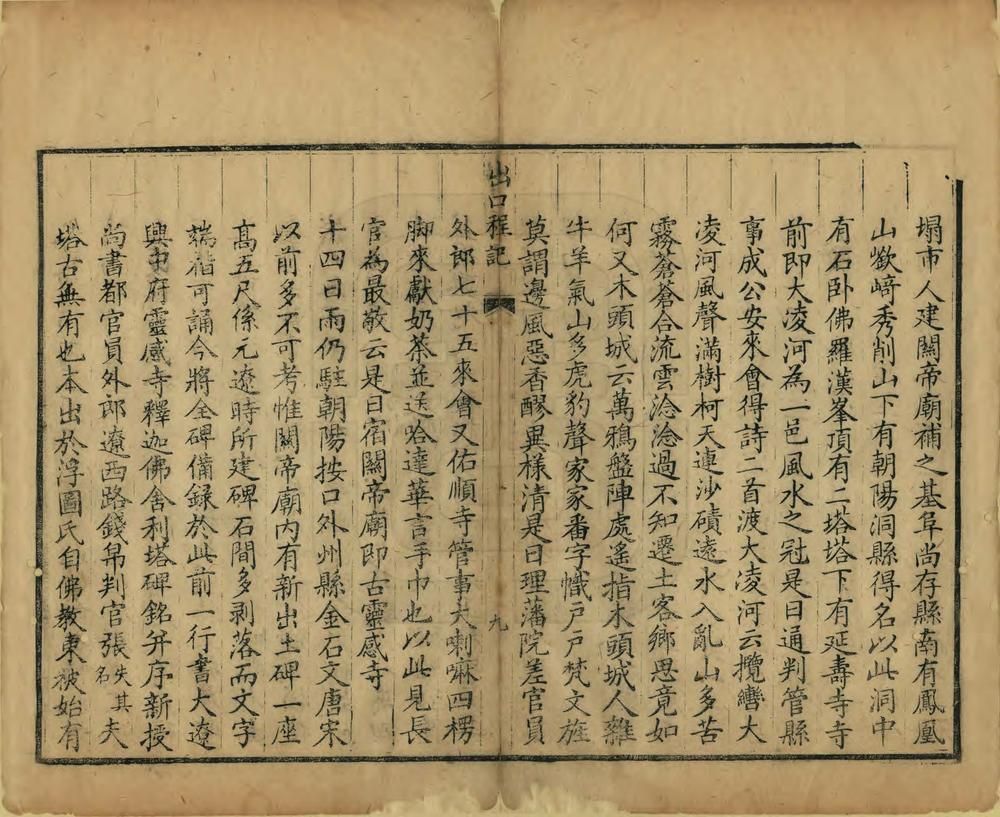 塌市人建關帝廟補之基阜尚存縣南有鳳凰
山嶔﨑秀削山下有朝陽洞縣得名以此洞中
有石卧佛羅漢峯頂有二塔塔下有延壽寺寺
前即大凌河為一邑風水之冠是日通判管縣
事成公安來會得詩二首渡大凌河云攬轡大
凌河風聲滿樹柯天連沙磧遠水入亂山多苦
霧蒼蒼合流雲淰淰過不知遷土客鄉思竟如
何又木頭城云萬鴉盤陣處遙指木頭城人雜
牛羊氣山多虎豹聲家家番字幟戶戶梵文旌
莫謂邊風惡香醪異樣清是日理藩院差官員
出口程記
九
外郎七十五來會又佑順寺管事大喇嘛四楞
脚來獻奶茶並送哈達華言手巾也以此見長
官為最敬云是日宿關帝廟即古靈感寺
十四日雨仍駐朝陽按口外州縣金石文唐宋
以前多不可考惟關帝廟內有新出土碑一座
高五尺係元遼時所建碑石間多剥落而文字
端楷可誦今將全碑備録於此前一行書大遼
興中府靈感寺釋迦佛舍利塔碑銘并序新授
尚書都官員外郎遼西路錢帛判官張失其名夫
塔古無有也本出於浮圖氏自佛教東被始有